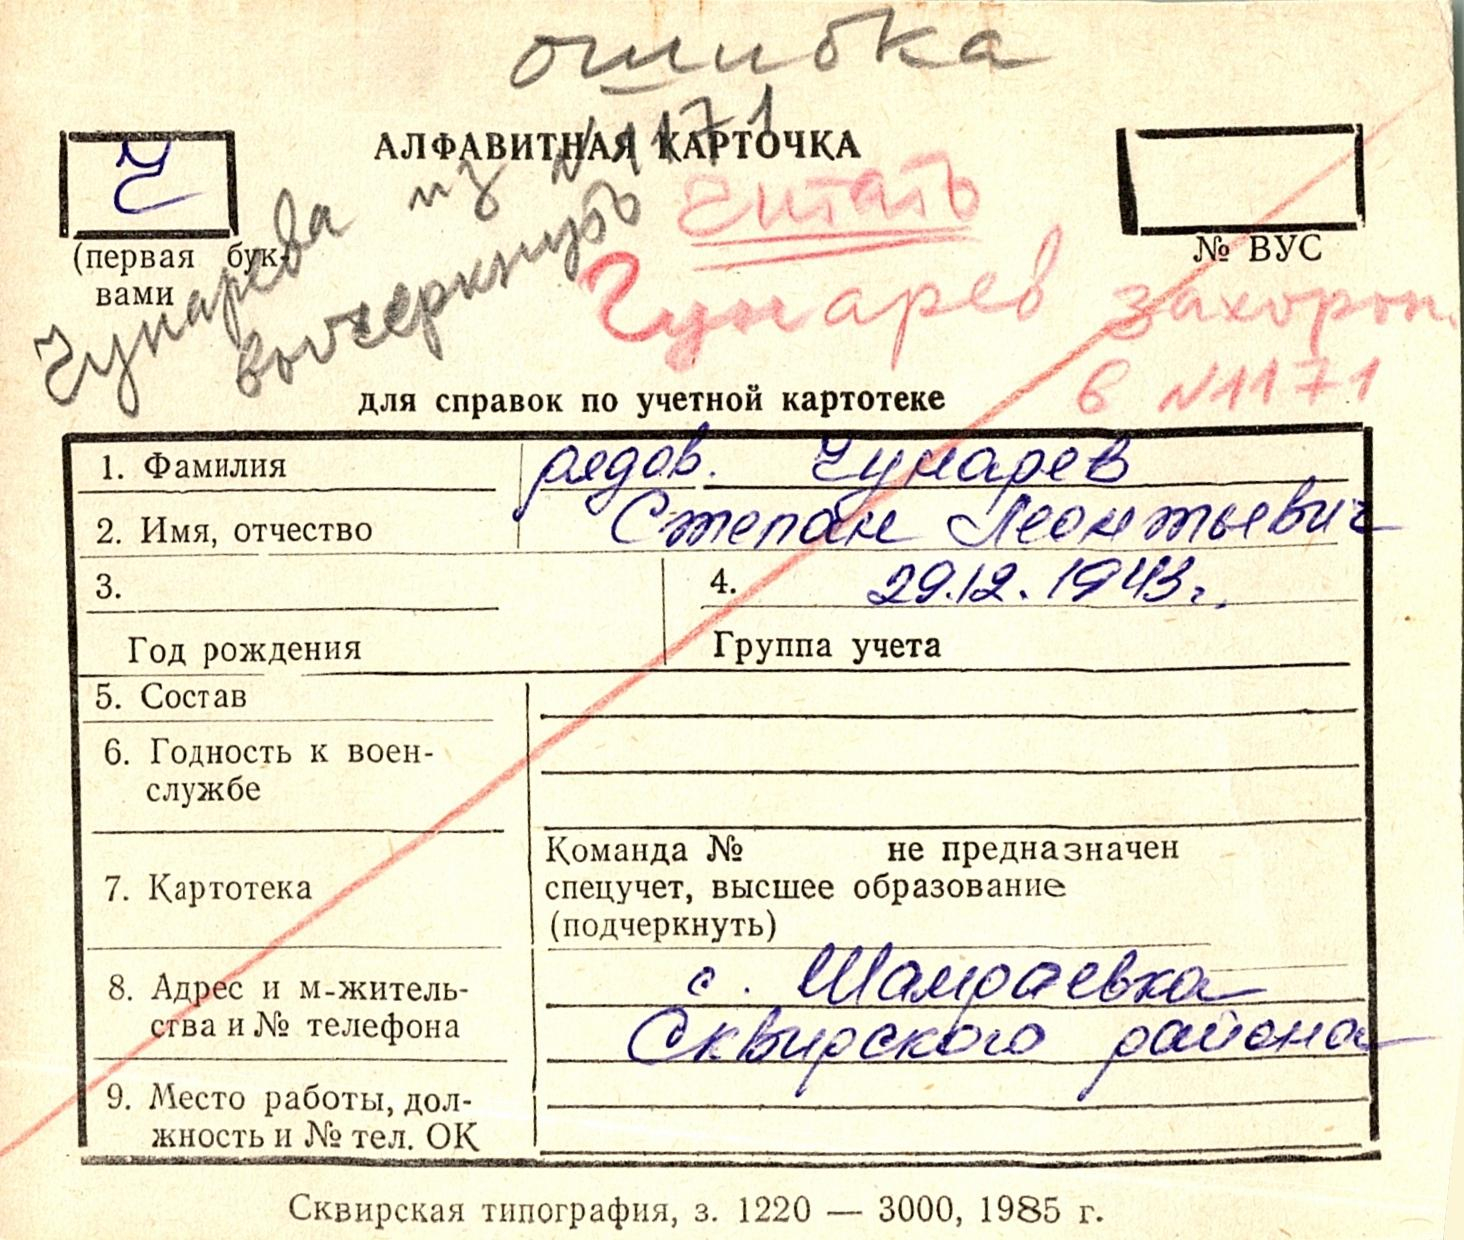 ошибка
Чунарева из №1171
вычеркнуть
АЛФАВИТНАЯ КАРТОЧКА
Ч
(первая бук-
вами
читать
Чунарев захорон.
в №1171
№ ВУС
для справок по учетной картотеке
1. Фамилия рядов. Чунарев
2. Имя, отчество Степан Леонтьевич
3. 4. 29.12.1943г.
Год рождения Группа учета
5. Состав
6. Годность к воен-
службе
7. Картотека
Команда № не предназначен
спецучет, высшее образование
(подчеркнуть)
8. Адрес и м-житель-
ства и № телефона
с. Шамраевка
Сквирского района
9. Место работы, дол-
жность и № тел. ОК
Сквирская типография, з. 1220 — 3000, 1985 г.